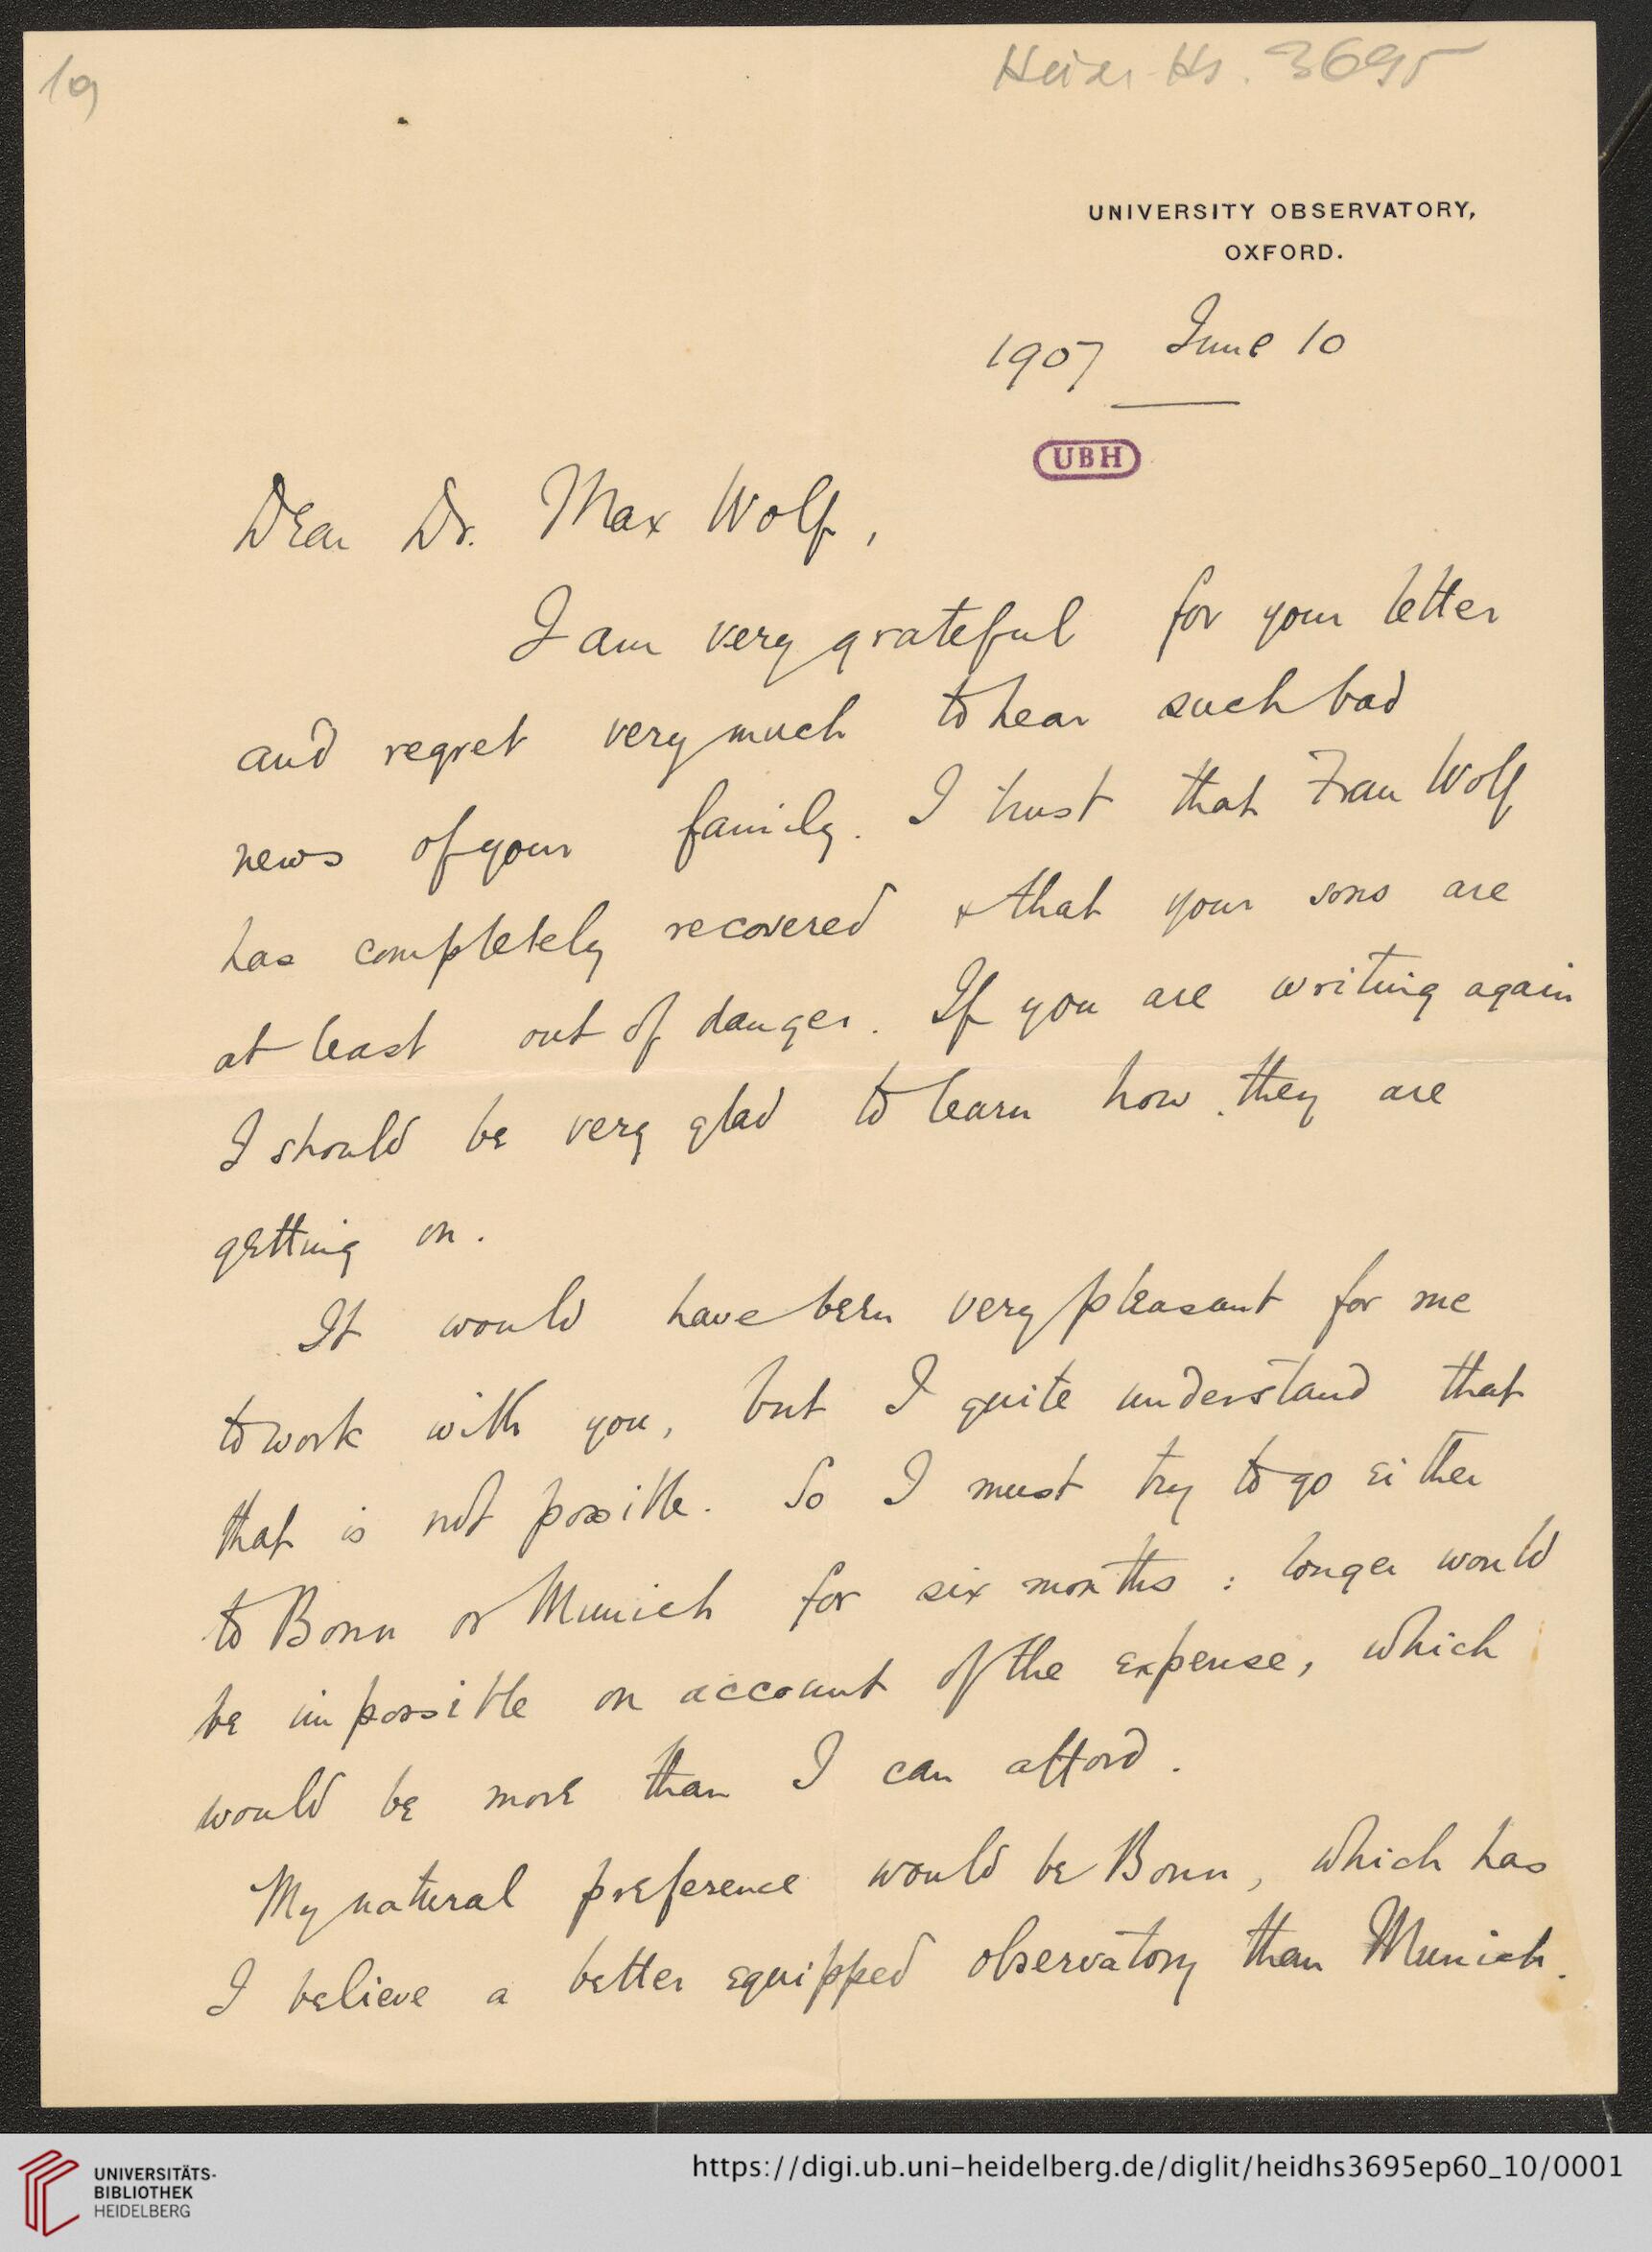 19
Heid. Hs. 3695
UNIVERSITY OBSERVATORY,
OXFORD.
1907 June 10
UBH
Dear Dr. Max Wolf,
I am very grateful for your letter
and regret very much to hear such bad
news of your family. I trust that Frau Wolf
has completely recovered & that your sons are
at least out of danger. If you are writing again
I should be very glad to learn how they are
getting on.
It would have been very pleasant for me
to work with you, but I quite understand that
that is not possible. So I must try to go either
to Bonn or Munich for six months : longer would
be impossible on account of the expense, which
would be more than I can afford.
My natural preference would be Bonn, which has
I believe a better equipped observatory than Munich.
UNIVERSITÄTS-
BIBLIOTHEK
HEIDELBERG
https://digi.ub.uni-heidelberg.de/diglit/heidhs3695ep60_10/0001